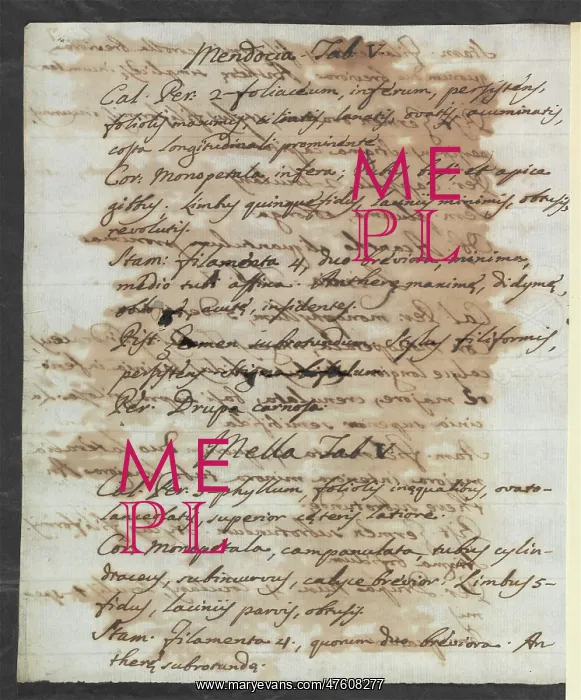 Mendocia Tab V.
Cal. Per: 2-foliaceum, inferum, persistens,
foliolis maximis, planatis, ovatis, acuminatis,
costa longitudinali prominente.
Cor: Monopetala, infera; et apice
gibbus. Limbus quinquefidus, laciniis minimis, obtusis,
revolutis.
Stam: filamenta 4, duo breviora, minima,
medio tubi affixa. Antheræ maximæ, didymæ,
acutæ, insidentes.
Pist: Germen subrotundum. Stylus filiformis,
persistens.
Per: Drupa carnosa.
Mella Tab V.
Cal. Per: phyllum, foliolis inæqualibus, ovato-
lanceolatis, superior cæteris latiore.
Cor: Monopetala, campanulata, tubus cylin-
draceus, subincurvus, calyce brevior. Limbus 5-
fidus, laciniis parvis, obtusis.
Stam: Filamenta 4, quorum duo breviora. An
theræ subrotundæ.
ME
PL
ME
PL
www.maryevans.com/47608277